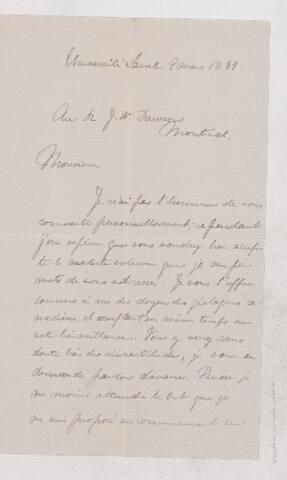 Université Laval 9 mars 1881
Au Dr J. W. Dawson
Montréal.
Monsieur
Je n'ai pas l'honneur de vous
connaître personnellement; cependant
j'ose espérer que vous voudrez bien accep-
ter le modeste volume que je me per-
mets de vous adresser. Je vous l'offre
comme à un des doyens des géologues ca-
nadiens, et comptant en même temps sur
votre bienveillance. Vous y verrez sans
doute bien des inexactitudes, je vous en
demande pardon d'avance. Puissé-je
au moins atteindre le but que je
me suis proposé en commençant ce